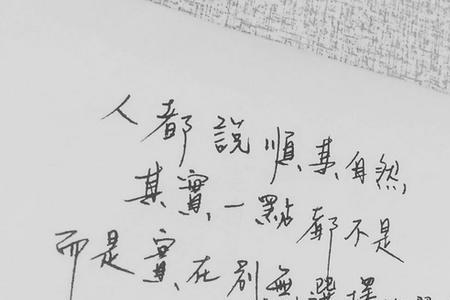 人都說順其自然,
其實一點都不是
而是實在別無選擇